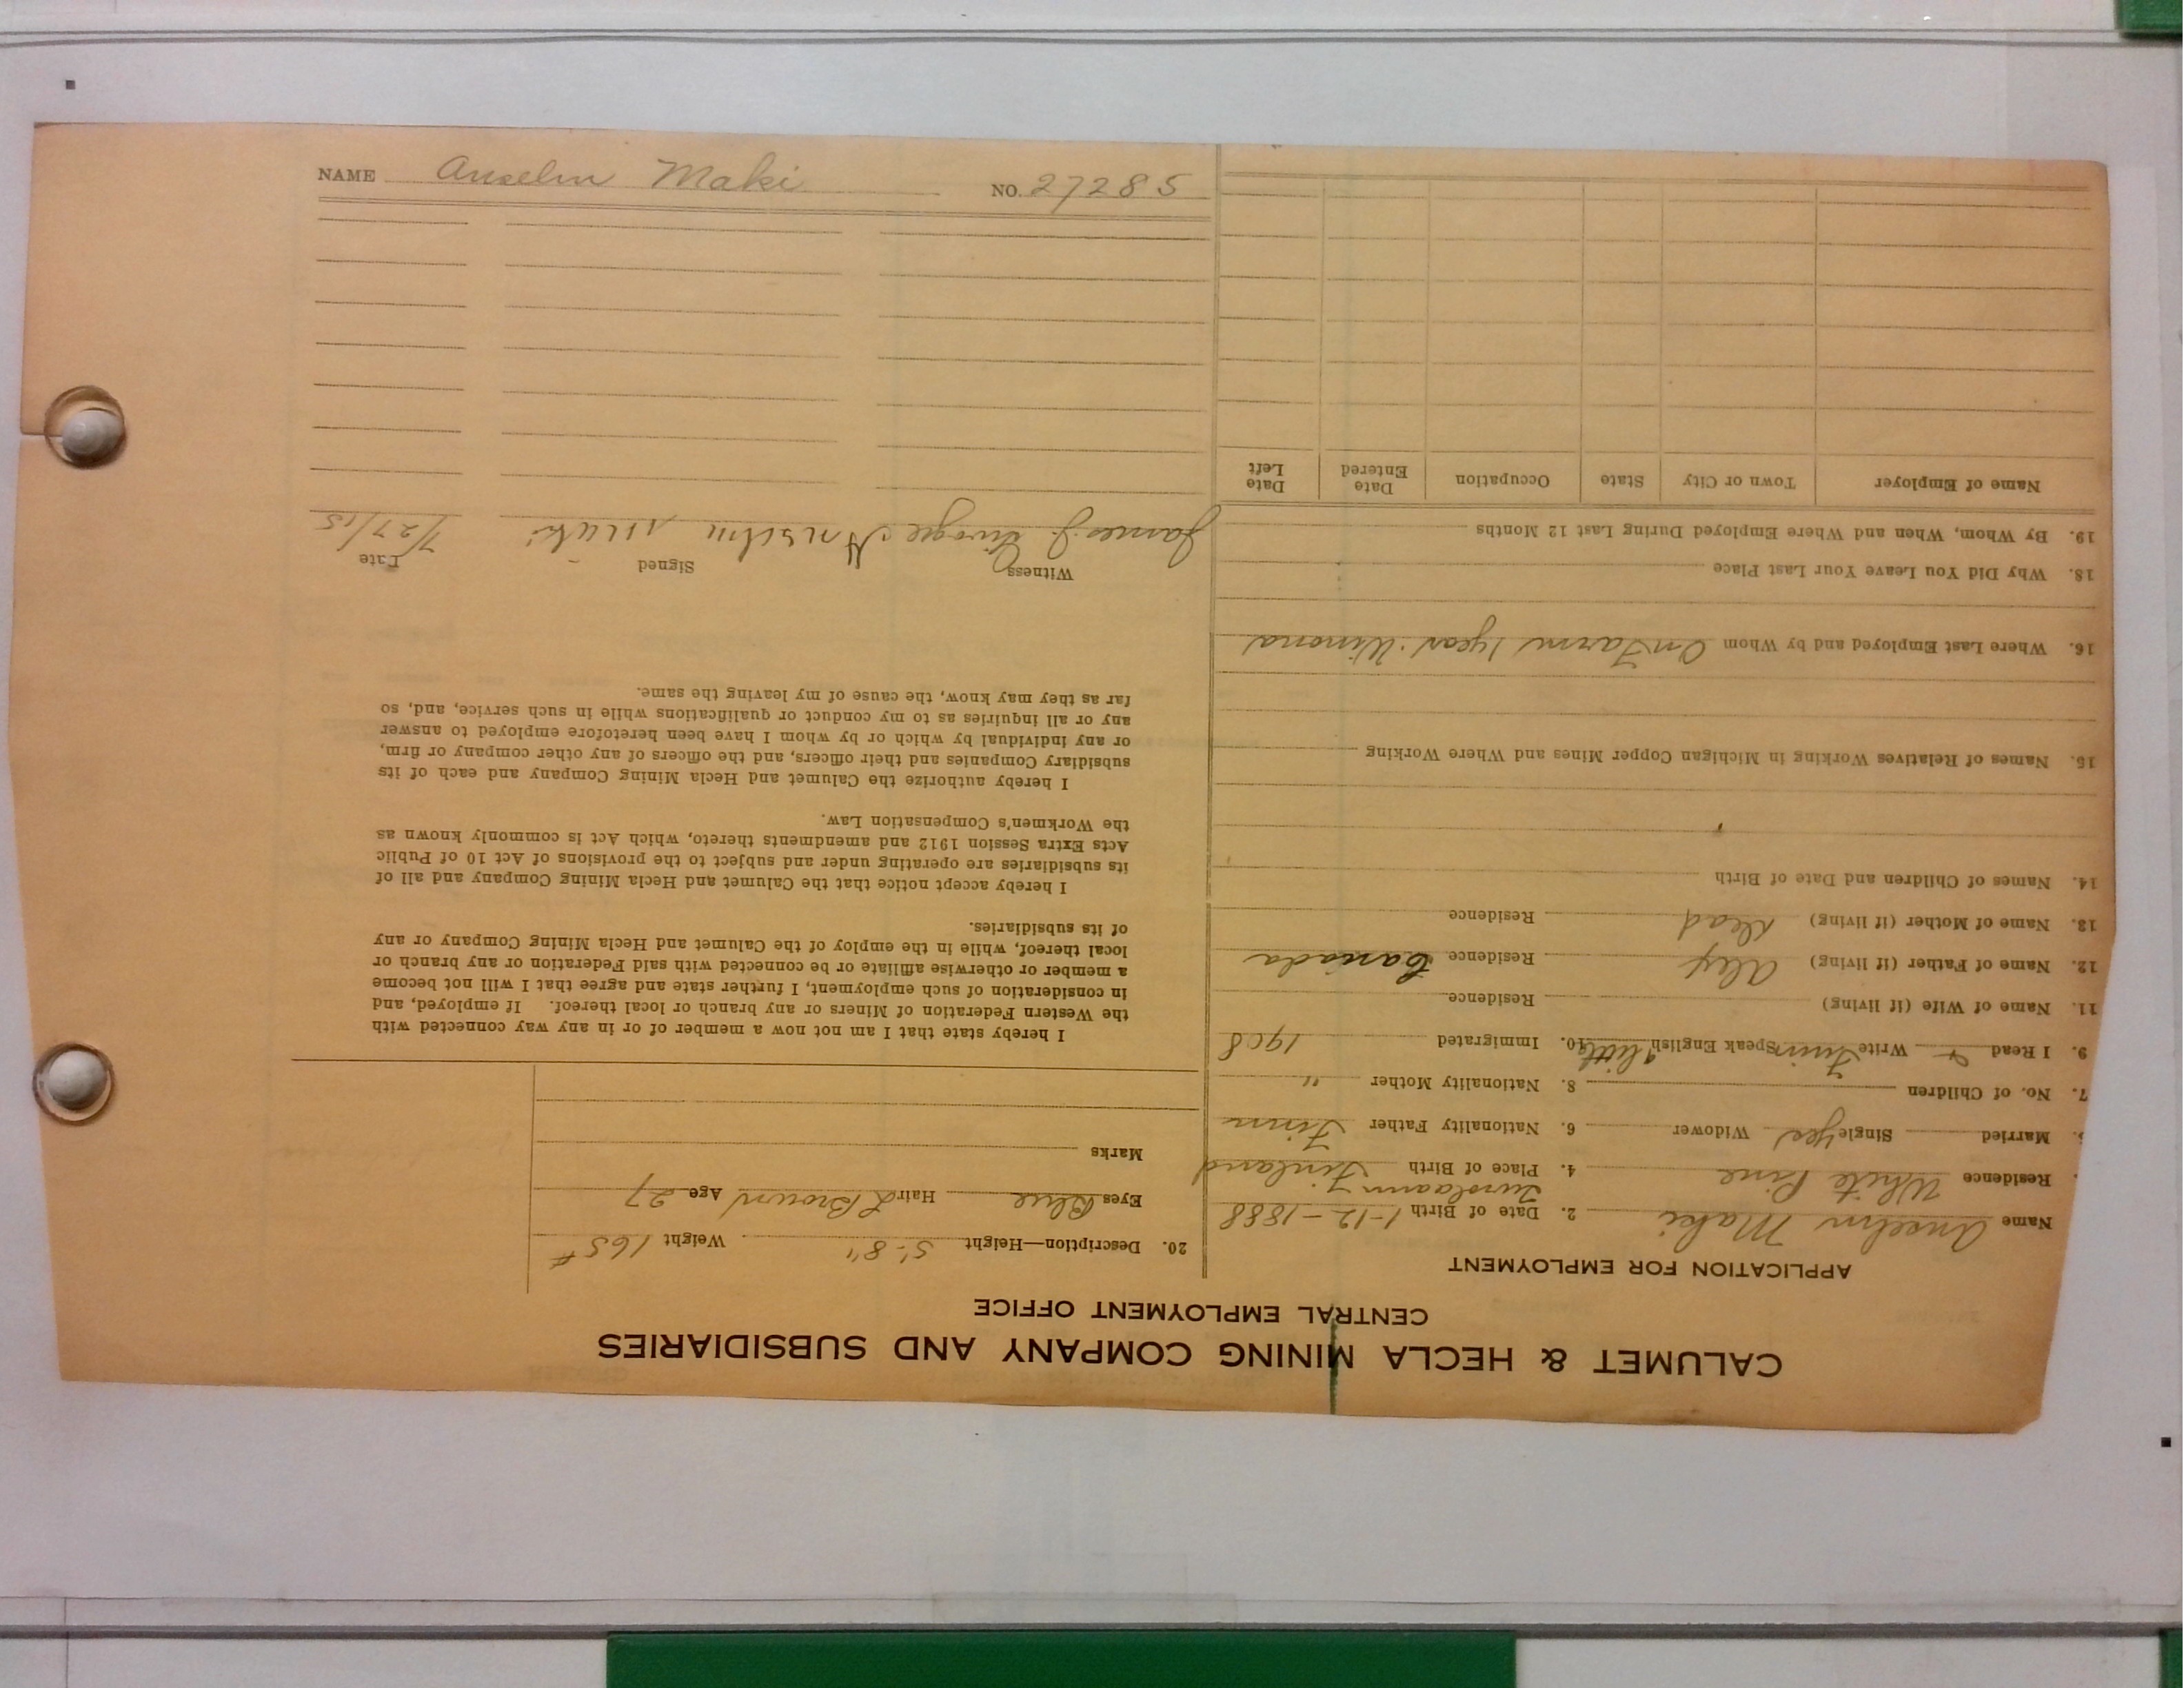 CALUMET & HECLA MINING COMPANY AND SUBSIDIARIES
CENTRAL EMPLOYMENT OFFICE
APPLICATION FOR EMPLOYMENT
Name Anselm Maki 2. Date of Birth 1-12-1888
Residence White Pine 4. Place of Birth Finland
Married Single Yes Widower 6. Nationality Father Finn
7. No. of Children 8. Nationality Mother "
9. I Read & Write Finn Speak English little 10. Immigrated 1908
11. Name of Wife (if living) Residence
12. Name of Father (if living) Alex Residence Canada
13. Name of Mother (if living) Dead Residence
14. Names of Children and Date of Birth
15. Names of Relatives Working in Michigan Copper Mines and Where Working
16. Where Last Employed and by Whom On Farm 1 year. Winona
18. Why Did You Leave Your Last Place
19. By Whom, When and Where Employed During Last 12 Months
Name of Employer Town or City State Occupation Date Entered Date Left
20. Description—Height 5'-8" Weight 165#
Eyes Blue Hair L Brown Age 27
Marks
I hereby state that I am not now a member of or in any way connected with
the Western Federation of Miners or any branch or local thereof. If employed, and
in consideration of such employment, I further state and agree that I will not become
a member or otherwise affiliate or be connected with said Federation or any branch or
local thereof, while in the employ of the Calumet and Hecla Mining Company or any
of its subsidiaries.
I hereby accept notice that the Calumet and Hecla Mining Company and all of
its subsidiaries are operating under and subject to the provisions of Act 10 of Public
Acts Extra Session 1912 and amendments thereto, which Act is commonly known as
the Workmen's Compensation Law.
I hereby authorize the Calumet and Hecla Mining Company and each of its
subsidiary Companies and their officers, and the officers of any other company or firm,
or any individual by which or by whom I have been heretofore employed to answer
any or all inquiries as to my conduct or qualifications while in such service, and, so
far as they may know, the cause of my leaving the same.
Witness Signed Date
James J. Anselm Maki 7/27/15
NAME Anselm Maki NO. 27285